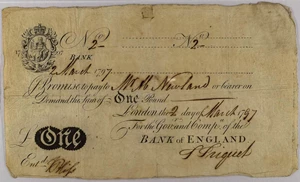 No 2 No 2
BANK
2 March 1797
I Promise to pay to Mr A. Newland or bearer on
Demand the Sum of One Pound
London the 2 day of March 1797
For the Govr and Compa of the
BANK of ENGLAND
£ One
Entd